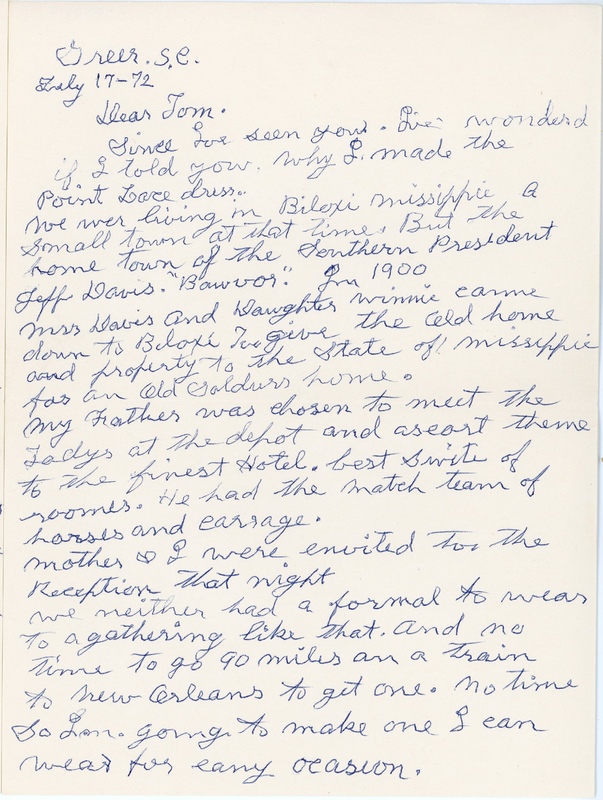 Greer. S.C.
July 17-72
Dear Tom.
Since I've seen you. I've wonderd
if I told you. why I. made the
Point Lace dress.
We wer living in Biloxi missippie a
small town at that time. But the
home town of the Southern President
Jeff Davis. "Bawvor." In 1900
Mrs Davis and Daughter winnie came
down to Biloxi Too give the old home
and property to the State of missippie
for an old Soldurs home.
My Father was chosen to meet the
Ladys at the depot and ascort theme
to the finest Hotel. best Swite of
rooms. He had the match team of
horses and carrage.
mother & I were envited too the
Reception that night
we neither had a formal to wear
To a gathering like that. And no
time to go 90 miles an a train
to New Orleans to get one. no time
So I.m. going to make one I can
wear for eany ocasion.